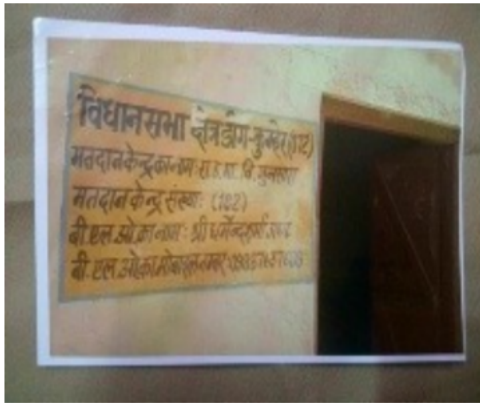 विधानसभा क्षेत्र डीग-कुम्हेर(172)
मतदान केन्द्र का नाम रा.उ.मा.वि.
मतदान केन्द्र संख्या: (182)
बी.एल.ओ.का नाम: श्री धर्मेन्द्र शर्मा
बी.एल.ओ.का मोबाइल नम्बर